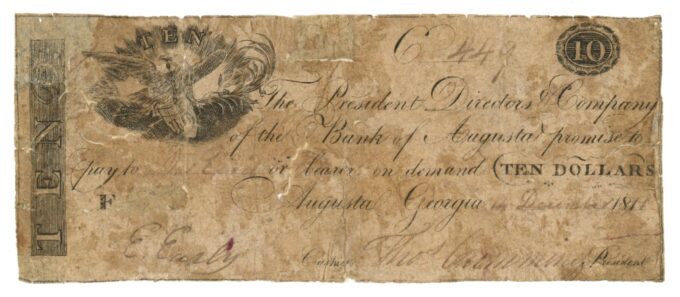 TEN
TEN
C 449
10
The President Directors & Company
of the Bank of Augusta promise to
pay to or bearer on demand (TEN DOLLARS
F
Augusta Georgia December 181
E. Early Cashr. Thos. Cumming President